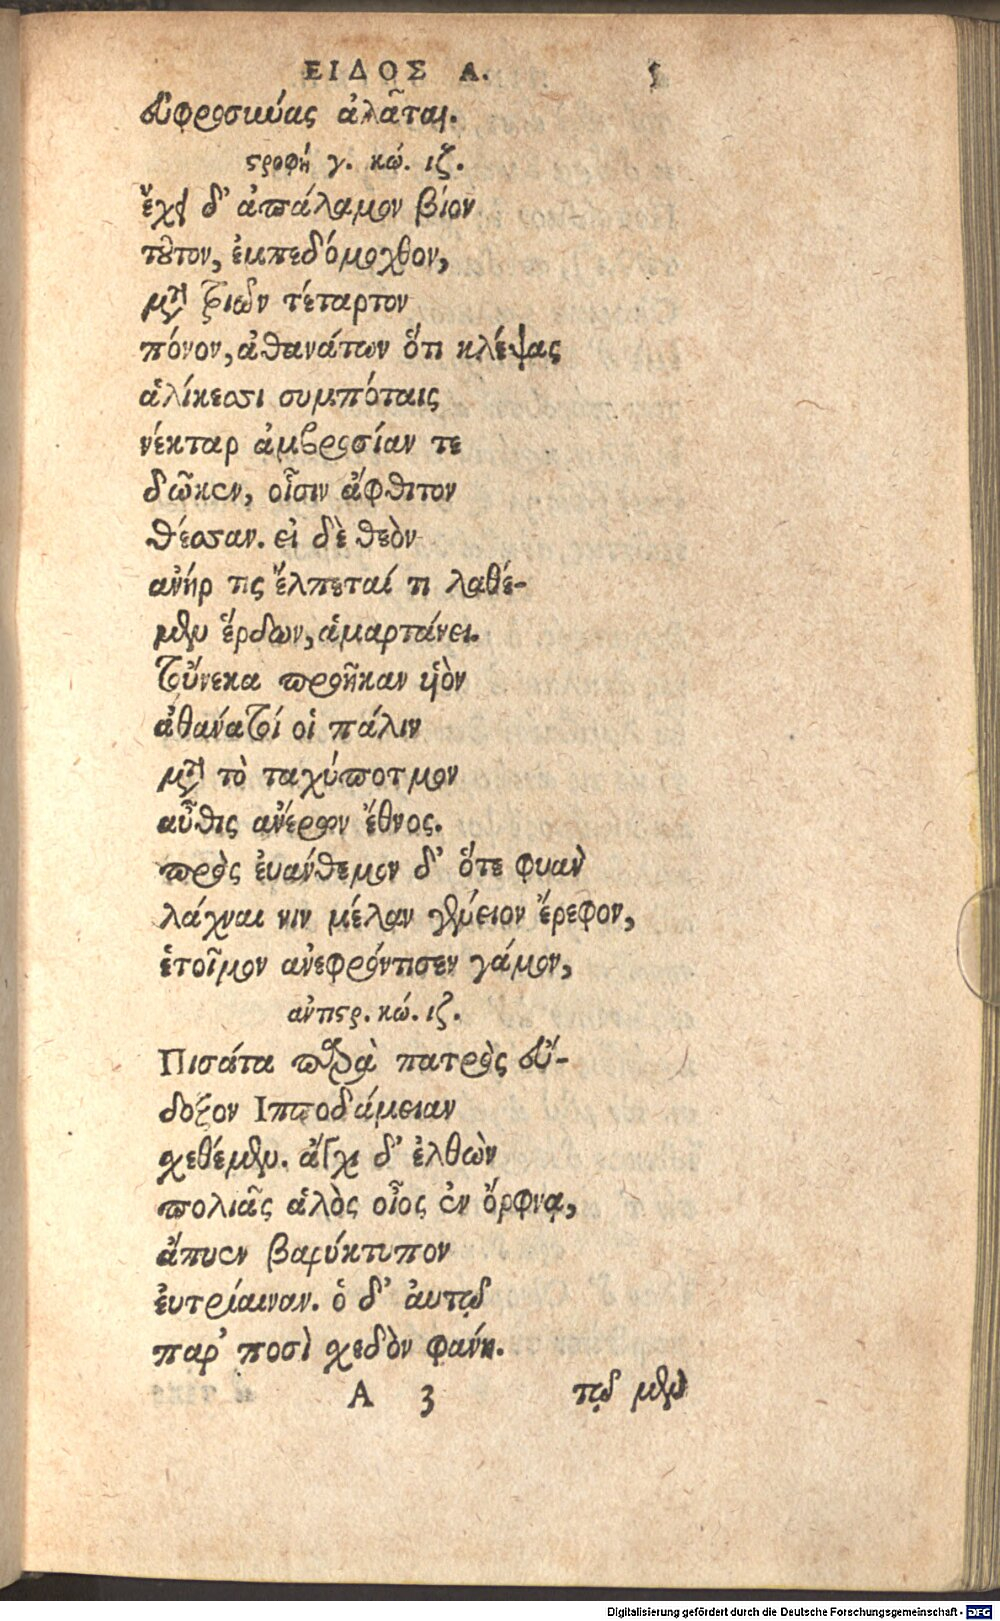 ΕΙΔΟΣ Α. 5
εὐφροσύνας ἀλᾶται.
στροφὴ γ. κώ. ιζ.
ἔχει δ' ἀπάλαμον βίον
τοῦτον, ἐμπεδόμοχθον,
μετὰ τριῶν τέταρτον
πόνον, ἀθανάτων ὅτι κλέψας
ἁλίκεσσι συμπόταις
νέκταρ ἀμβροσίαν τε
δῶκεν, οἷσιν ἄφθιτον
θέσσαν. εἰ δὲ θεὸν
ἀνήρ τις ἔλπεταί τι λαθέ-
μεν ἔρδων, ἁμαρτάνει.
Τοὔνεκα προῆκαν υἱὸν
ἀθάνατοί οἱ πάλιν
μετὰ τὸ ταχύποτμον
αὖθις ἀνέρων ἔθνος.
πρὸς ἐυάνθεμον δ' ὅτε φυὰν
λάχναι νιν μέλαν γένειον ἔρεφον,
ἑτοῖμον ἀνεφρόντισεν γάμον,
ἀντιστρ. κώ. ιζ.
Πισάτα παρὰ πατρὸς εὔ-
δοξον Ιπποδάμειαν
σχεθέμεν. ἄγχι δ' ἐλθὼν
πολιᾶς ἁλὸς οἶος ἐν ὄρφνᾳ,
ἄπυεν βαρύκτυπον
ἐυτρίαιναν. ὁ δ' ἀυτῷ
παρ' ποσὶ σχεδὸν φάνη.
Α 3 τῷ μὲν